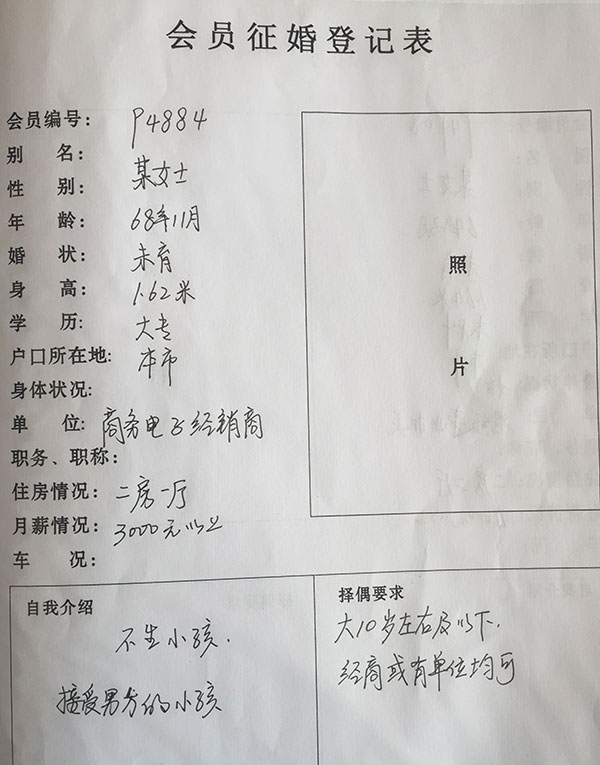 会员征婚登记表
会员编号： P4884
别 名： 某女士
性 别：
年 龄： 68年11月
婚 状： 未育
身 高： 1.62米
学 历： 大专
户口所在地： 本市
身体状况：
单 位： 商务电子经销商
职务、职称：
住房情况： 二房一厅
月薪情况： 3000元以上
车 况：
照
片
自我介绍
不生小孩.
接受男方的小孩
择偶要求
大10岁左右及以下.
经商或有单位均可